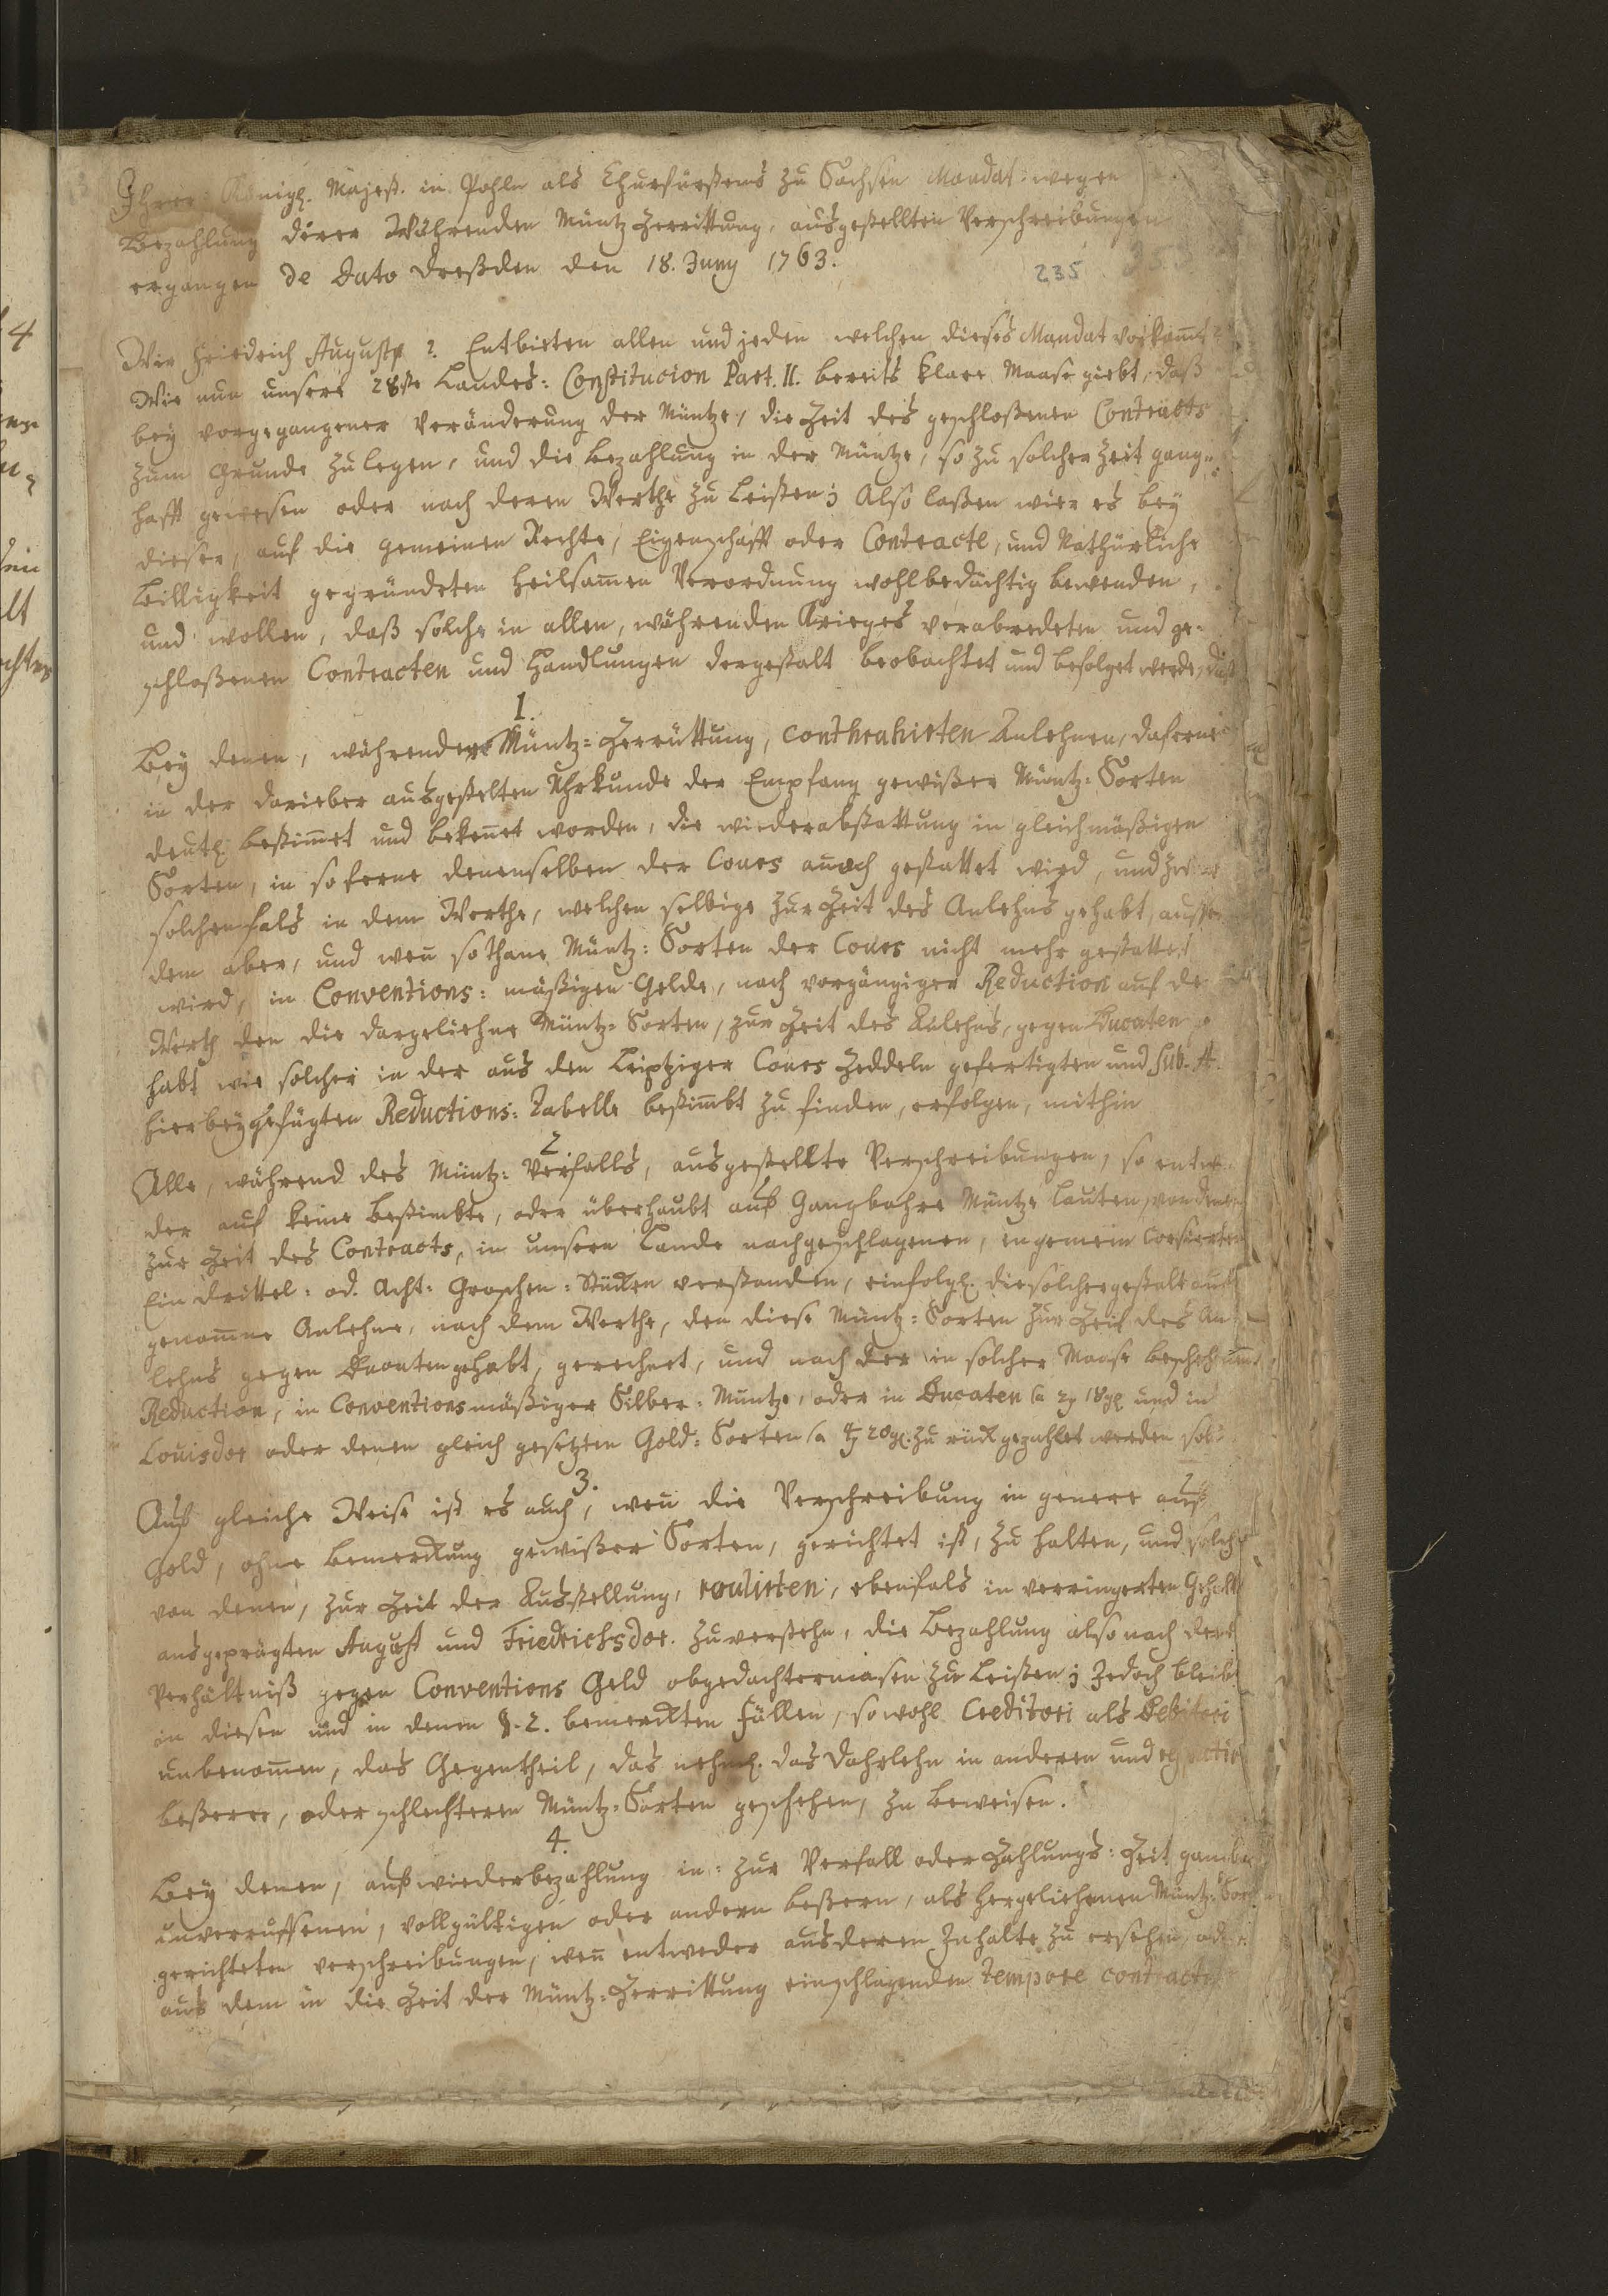 Ihrer Königl. Majest. in Pohln als Churfürstens zu Sachsen Mandat: wegen
Bezahlung derer Währenden Müntz Zerrittung, ausgestellten Verschreibungen
ergangen de Dato Dreßden den 18. Juny 1763.
235
Wir Friedrich August p. Entbieten allen und jeden welchen dieses Mandat vorkomt
Wie nun unsere 28ste Landes: Constitucion Part. II. bereits klare Maase giebt, daß
bey vorgegangener Veränderung der Müntze, die Zeit des geschloßenen Contracts
zum Grunde zu legen, und die Bezahlung in der Müntze, so zu solcher Zeit gang-
hafft gewesen oder nach deren Werthe zu Leisten; Also laßen wir es bey
dieser, auf die gemeinen Rechte, Eigenschafft oder Contracte, und Nathürliche
Billigkeit gegründeten heilsamen Verordnung wohlbedächtig bewenden,
und wollen, daß solche in allen, währenden Krieges verabredeten und ge-
schloßenen Contracten und Handlungen dergestalt beobachtet und befolget werde, daß
1.
Bey denen, währender Müntz-Zerrüttung, conthrahirten Anlehnen, daferne
in der darieber ausgestelten Uhrkunde der Empfang gewißer Müntz-Sorten
deutl. bestimmet und bekennet worden, die wiederabstattung in gleichmäßigen
Sorten, in soferne denenselben der Cours annoch gestattet wird, und zwar
solchenfals in dem Werthe, welchen selbige zur Zeit des Anlehns gehabt, ausser
dem aber, und wen sothane Müntz: Sorten der Cours nicht mehr gestattet
wird, in Conventions: mäßigen Gelde, nach vorgängiger Reduction auf de
Werth den die dargeliehne Müntz-Sorten, zur Zeit des Anlehns, gegen Ducaten
habt wie solcher in der aus den Leiptziger Cours Zeddeln gefertigten und sub. A.
hierbeygefügten Reductions: Tabelle bestimbt zu finden, erfolgen, mithin
2
Alle, während des Müntz: Verfalls, ausgestellte Verschreibungen, so entwe
der auf keine bestimbte, oder überhaubt auf Gangbahre Müntze lauten, von denen
zur Zeit des Contracts, in unsern Lande nachgeschlagenen, ingemein Coursirten
Ein Drittel: od. Acht: Groschen: Stücken verstanden, einfolgl. die solchergestalt auf
genomme Anlehne, nach dem Werthe, den diese Müntz: Sorten zur Zeit des An-
lehns gegen Ducaten gehabt, gerechnet, und nach der in solcher Maase beschehenen
Reduction, in Conventionsmäßiger Silber: Müntze, oder in Ducaten a 2 18 gl und in
Louisdor oder denen gleich gesetzten Gold: Sorten a 4 20 gl. zurück gezahlet werden soll
3.
Auf gleiche Weise ist es auch, wen die Verschreibung in genere auf
Gold, ohne Bemerckung gewißer Sorten, gerichtet ist, zu halten, und solche
von denen, zur Zeit der Ausstellung, roulirten, ebenfals in verringerten Gehalt
ausgeprägten August und Friedrichsdor. zu verstehn, die Bezahlung also nach deren
Verhältniß gegen Conventions Geld obgedachtermasen zu leisten; Jedoch bleibt
in diesen und in denen §. 2. bemerckten Fällen, sowohl Creditori als Debitori
unbenommen, das Gegentheil, das nehml. das Darlehn in anderen und
beßeren, oder schlechteren Müntz-Sorten geschehen, zu beweisen.
4.
Bey denen, auf wiederbezahlung in: zur Verfall oder Zahlungs: Zeit gangba
unverruffenen, vollgültigen oder andern beßern, als hergeliehenen Müntz: Sorten
gerichteten verschreibungen, wen entweder aus deren Inhalte zu ersehen, oder
aus dem in die Zeit der Müntz-Zerrittung einschlagenden tempore contracti